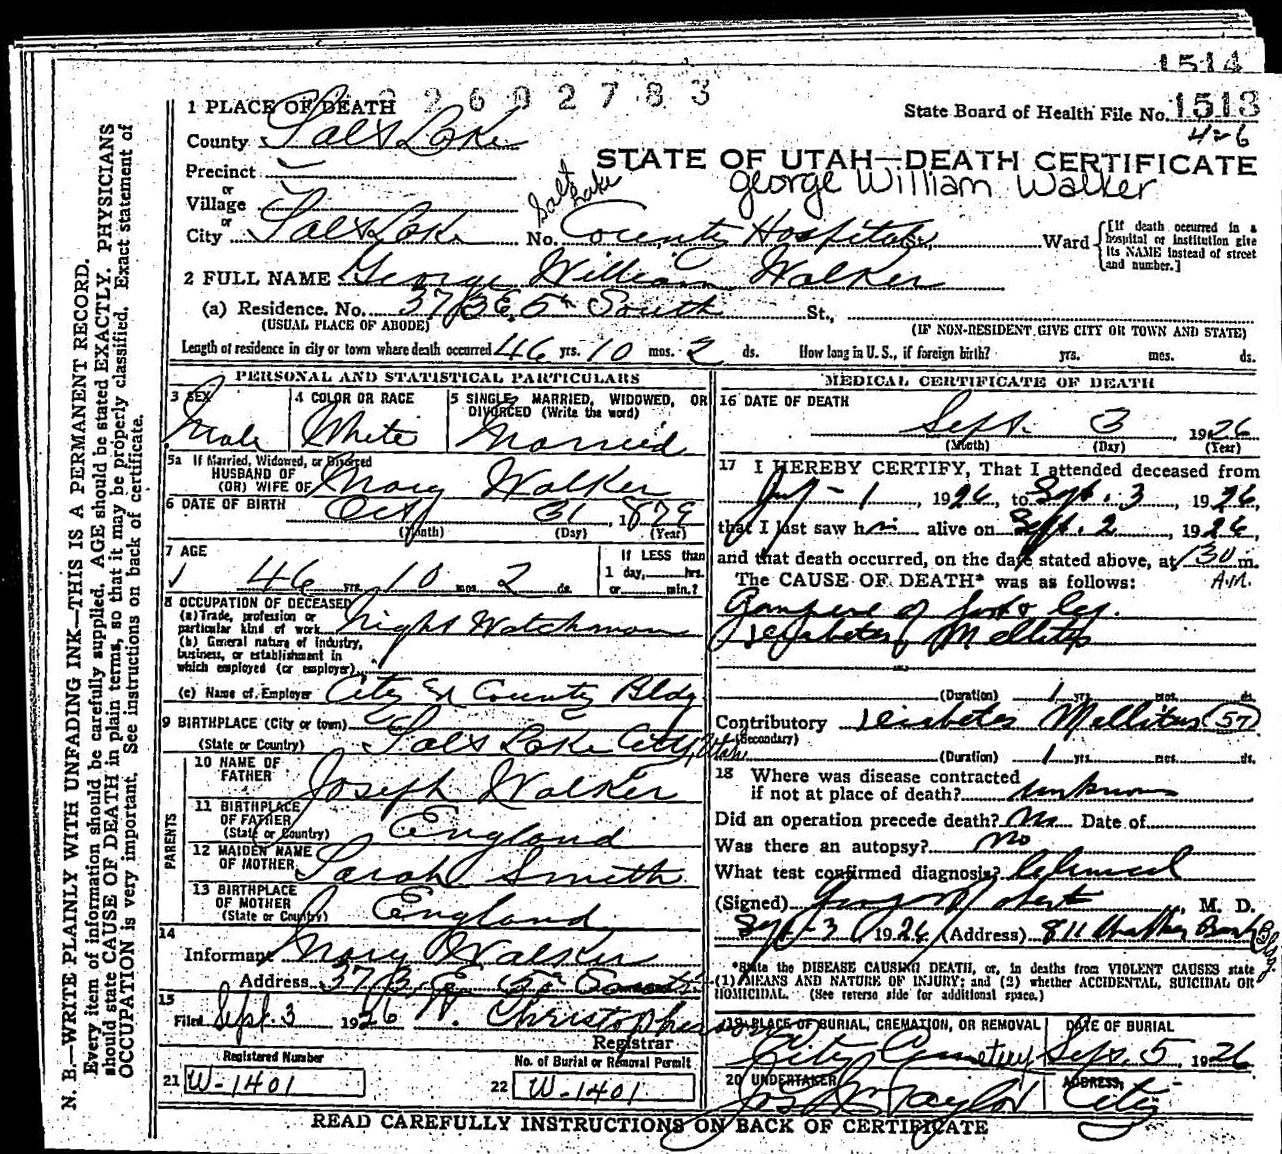 1514
2692783
State Board of Health File No. 1513
4-6
1 PLACE OF DEATH
County Salt Lake
STATE OF UTAH—DEATH CERTIFICATE
George William Walker
Precinct
or
Village
or
City Salt Lake No. Salt Lake County Hospital St., Ward {[If death occurred in a hospital or institution give its NAME instead of street and number.]
2 FULL NAME George William Walker
(a) Residence. No. 37 E. 5th South St.,
(USUAL PLACE OF ABODE) (IF NON-RESIDENT GIVE CITY OR TOWN AND STATE)
Length of residence in city or town where death occurred 46 yrs. 10 mos. 2 ds. How long in U. S., if foreign birth? yrs. mos. ds.
PERSONAL AND STATISTICAL PARTICULARS
3 SEX
Male
4 COLOR OR RACE
White
5 SINGLE, MARRIED, WIDOWED, OR
DIVORCED (Write the word)
Married
5a If Married, Widowed, or Divorced
HUSBAND OF
(OR) WIFE OF Mary Walker
6 DATE OF BIRTH Oct 31, 1879
(Month) (Day) (Year)
7 AGE
46 yrs. 10 mos. 2 ds.
If LESS than
1 day, hrs.
or min.?
8 OCCUPATION OF DECEASED
(a) Trade, profession or
particular kind of work Night Watchman
(b) General nature of industry,
business, or establishment in
which employed (or employer)
(c) Name of Employer City & County Bldg
9 BIRTHPLACE (City or town)
(State or Country) Salt Lake City, Utah
PARENTS
10 NAME OF
FATHER Joseph Walker
11 BIRTHPLACE
OF FATHER
(State or Country) England
12 MAIDEN NAME
OF MOTHER Sarah Smith
13 BIRTHPLACE
OF MOTHER
(State or Country) England
14
Informant Mary Walker
Address 37 E. 5th South
15
Filed Sept. 3 1926 Christopherson
Registrar
Registered Number
21 W-1401
No. of Burial or Removal Permit
22 W-1401
MEDICAL CERTIFICATE OF DEATH
16 DATE OF DEATH
Sept. 3, 1926
(Month) (Day) (Year)
17 I HEREBY CERTIFY, That I attended deceased from
1 1926, to Sept. 3, 1926,
that I last saw him alive on Sept. 2, 1926,
and that death occurred, on the date stated above, at 130 m.
A.M.
The CAUSE OF DEATH* was as follows:
Gangrene of foot & leg.
Diabetes Mellitus
(Duration) 1 yrs. mos. ds.
Contributory Diabetes Mellitus (57)
(Secondary)
(Duration) 1 yrs. mos. ds.
18 Where was disease contracted
if not at place of death? unknown
Did an operation precede death? No Date of
Was there an autopsy? no
What test confirmed diagnosis? Clinical
(Signed) , M. D.
Sept-3, 1926 (Address) 811 Walker Bank Bldg.
*State the DISEASE CAUSING DEATH, or, in deaths from VIOLENT CAUSES state
(1) MEANS AND NATURE OF INJURY; and (2) whether ACCIDENTAL, SUICIDAL OR
HOMICIDAL. (See reverse side for additional space.)
19 PLACE OF BURIAL, CREMATION, OR REMOVAL
City Cemetery
DATE OF BURIAL
Sept. 5, 1926
20 UNDERTAKER
Taylor
ADDRESS,
City
READ CAREFULLY INSTRUCTIONS ON BACK OF CERTIFICATE
N. B.—WRITE PLAINLY WITH UNFADING INK—THIS IS A PERMANENT RECORD.
Every item of information should be carefully supplied. AGE should be stated EXACTLY. PHYSICIANS
should state CAUSE OF DEATH in plain terms, so that it may be properly classified. Exact statement of
OCCUPATION is very important. See instructions on back of certificate.